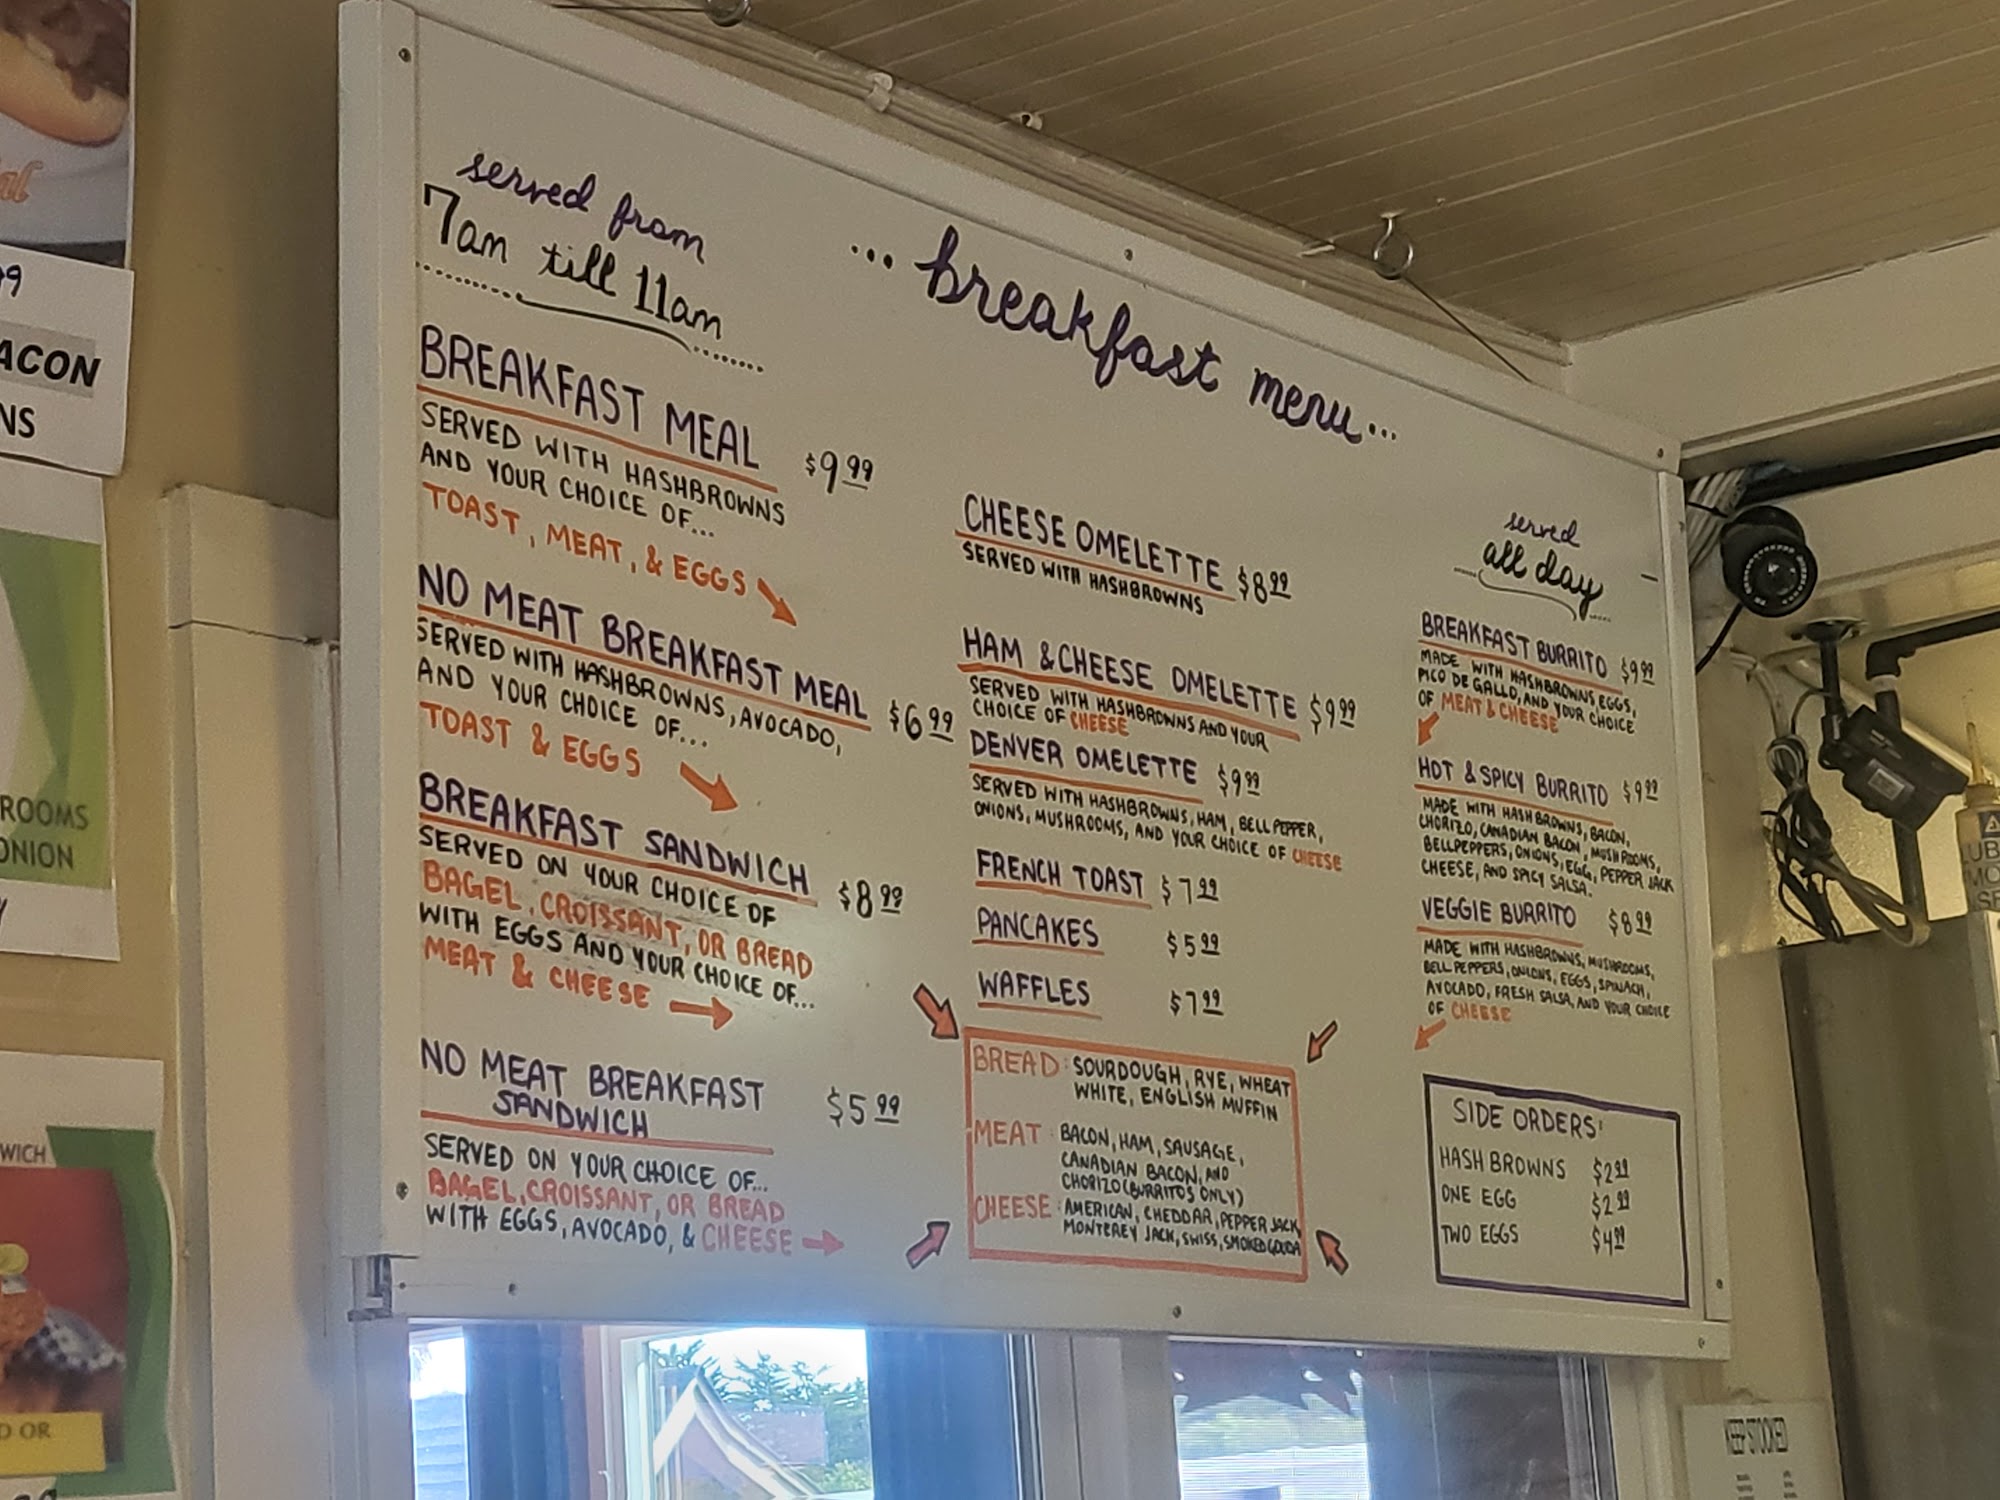 served from
7am till 11am
... breakfast menu...
BREAKFAST MEAL $9.99
SERVED WITH HASHBROWNS
AND YOUR CHOICE OF...
TOAST, MEAT, & EGGS
NO MEAT BREAKFAST MEAL $6.99
SERVED WITH HASHBROWNS, AVOCADO,
AND YOUR CHOICE OF...
TOAST & EGGS
BREAKFAST SANDWICH $8.99
SERVED ON YOUR CHOICE OF
BAGEL, CROISSANT, OR BREAD
WITH EGGS AND YOUR CHOICE OF...
MEAT & CHEESE
NO MEAT BREAKFAST
SANDWICH $5.99
SERVED ON YOUR CHOICE OF...
BAGEL, CROISSANT, OR BREAD
WITH EGGS, AVOCADO, & CHEESE
CHEESE OMELETTE $8.99
SERVED WITH HASHBROWNS
HAM & CHEESE OMELETTE $9.99
SERVED WITH HASHBROWNS AND YOUR
CHOICE OF CHEESE
DENVER OMELETTE $9.99
SERVED WITH HASHBROWNS, HAM, BELL PEPPER,
ONIONS, MUSHROOMS, AND YOUR CHOICE OF CHEESE
FRENCH TOAST $7.99
PANCAKES $5.99
WAFFLES $7.99
BREAD: SOURDOUGH, RYE, WHEAT
WHITE, ENGLISH MUFFIN
MEAT: BACON, HAM, SAUSAGE,
CANADIAN BACON, AND
CHORIZO (BURRITOS ONLY)
CHEESE: AMERICAN, CHEDDAR, PEPPER JACK,
MONTEREY JACK, SWISS, SMOKED GOUDA
served
all day
BREAKFAST BURRITO $9.99
MADE WITH HASHBROWNS, EGGS,
PICO DE GALLO, AND YOUR CHOICE
OF MEAT & CHEESE
HOT & SPICY BURRITO $9.99
MADE WITH HASH BROWNS, BACON,
CHORIZO, CANADIAN BACON, MUSHROOMS,
BELLPEPPERS, ONIONS, EGG, PEPPER JACK
CHEESE, AND SPICY SALSA.
VEGGIE BURRITO $8.99
MADE WITH HASHBROWNS, MUSHROOMS,
BELL PEPPERS, ONIONS, EGGS, SPINACH,
AVOCADO, FRESH SALSA, AND YOUR CHOICE
OF CHEESE
SIDE ORDERS:
HASH BROWNS $2.99
ONE EGG $2.99
TWO EGGS $4.99
ACON
NS
ROOMS
ONION
WICH
D OR
KEEP STOCKED